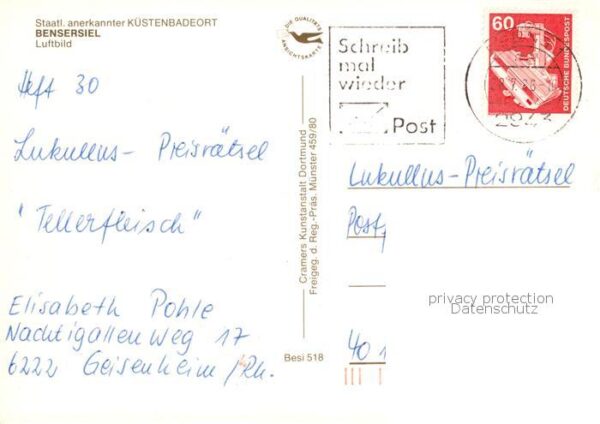 Staatl. anerkannter KÜSTENBADEORT
BENSERSIEL
Luftbild
DIE QUALITÄTS
ANSICHTSKARTE
Schreib
mal
wieder
Post
60
DEUTSCHE BUNDESPOST
Heft 30
Lukullus- Preisrätsel
"Tellerfleisch"
Elisabeth Pohle
Nachtigallenweg 17
6222 Geisenheim/Rh.
Cramers Kunstanstalt Dortmund
Freigeg. d. Reg.-Präs. Münster 459/80
Besi 518
Lukullus-Preisrätsel
Post
40
privacy protection
Datenschutz